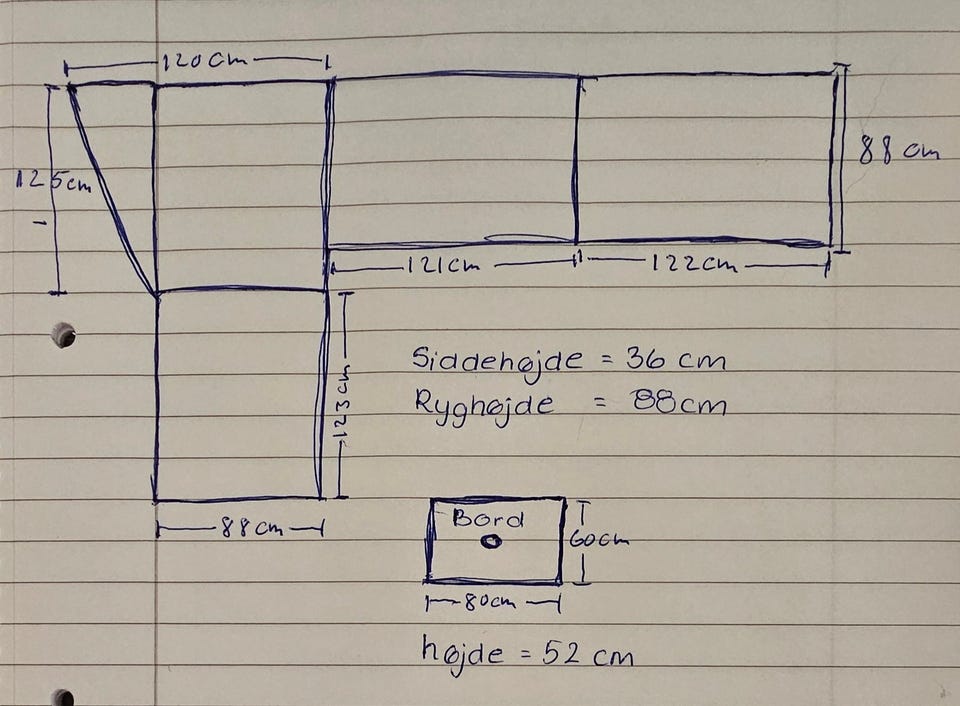 120cm
125cm
88 cm
121cm
122cm
123cm
Siddehøjde = 36 cm
Ryghøjde = 88cm
88cm
Bord
60cm
80cm
højde = 52 cm